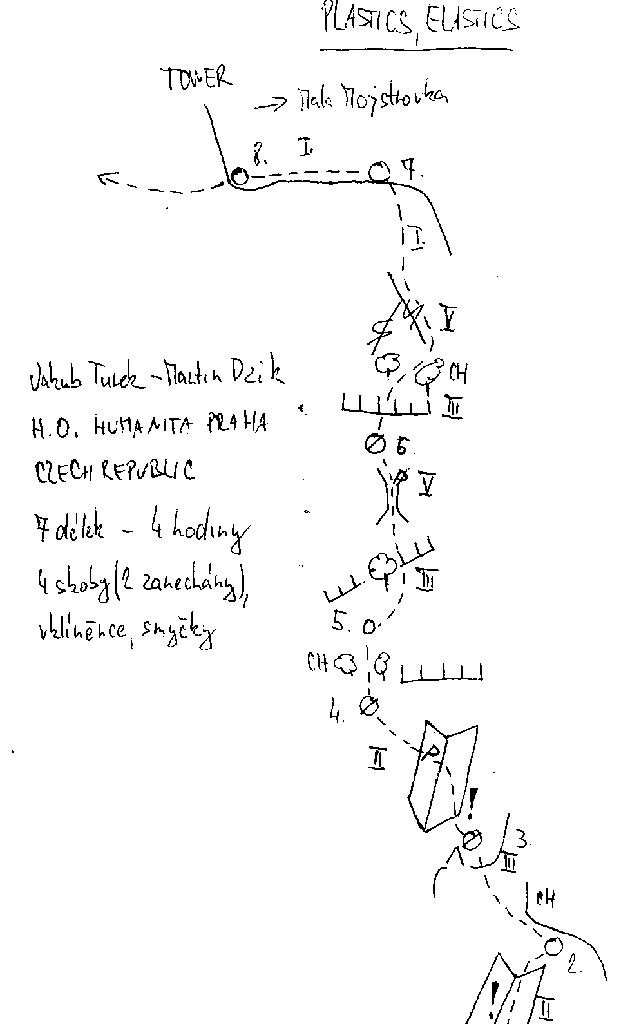 PLASTICS, ELASTICS
TOWER
→ Mala Mojstrovka
8. I. 7.
I.
V
CH
III
6.
V
III
5.
CH
4.
II
!
3.
III
CH
2.
!
II
Jakub Turek – Martin Dzik
H.O. HUMANITA PRAHA
CZECH REPUBLIC
7 délek – 4 hodiny
4 skoby (2 zanechány),
vklíněnce, smyčky